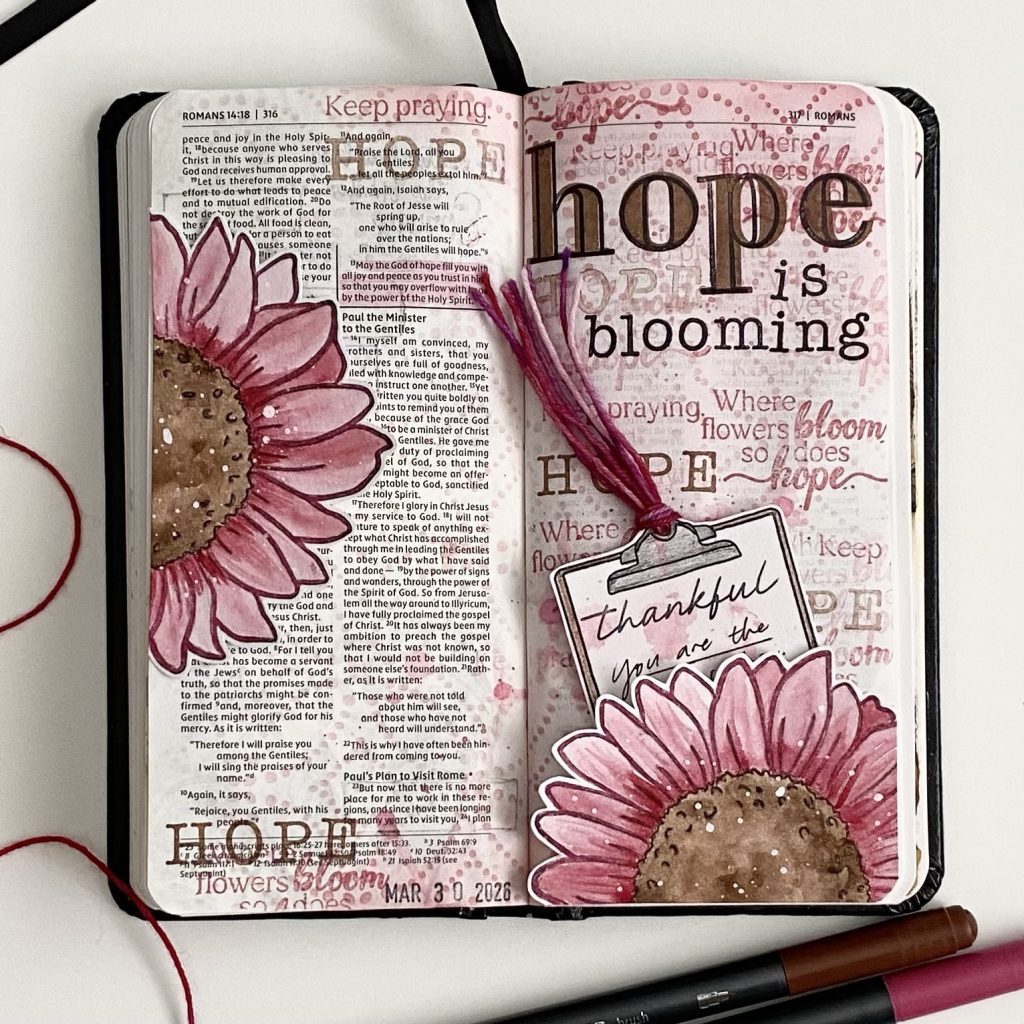 ROMANS 14:18 | 316
Keep praying.
peace and joy in the Holy Spir-
it, 18because anyone who serves
Christ in this way is pleasing to
God and receives human approval.
19Let us therefore make every
effort to do what leads to peace
and to mutual edification. 20Do
not destroy the work of God for
the food. All food is clean,
for a person to eat
causes someone
not
to do
your
and one
the God and
Jesus Christ.
then, just
in order to
to God. 8For I tell you
has become a servant
the Jews on behalf of God's
truth, so that the promises made
to the patriarchs might be con-
firmed 9and, moreover, that the
Gentiles might glorify God for his
mercy. As it is written:
"Therefore I will praise you
among the Gentiles;
I will sing the praises of your
name."
10Again, it says,
"Rejoice, you Gentiles, with his
people."
HOPE
flowers bloom
so does
11And again,
HOPE
"Praise the Lord, all you
Gentiles;
let all the peoples extol him."
12And again, Isaiah says,
"The Root of Jesse will
spring up,
one who will arise to rule
over the nations;
in him the Gentiles will hope."
13May the God of hope fill you with
all joy and peace as you trust in him,
so that you may overflow with hope
by the power of the Holy Spirit.
Paul the Minister
to the Gentiles
14I myself am convinced, my
brothers and sisters, that you
yourselves are full of goodness,
filled with knowledge and compe-
instruct one another. 15Yet
written you quite boldly on
points to remind you of them
because of the grace God
16to be a minister of Christ
Gentiles. He gave me
duty of proclaiming
of God, so that the
might become an offer-
acceptable to God, sanctified
Holy Spirit.
17Therefore I glory in Christ Jesus
my service to God. 18I will not
venture to speak of anything ex-
cept what Christ has accomplished
through me in leading the Gentiles
to obey God by what I have said
and done — 19by the power of signs
and wonders, through the power of
the Spirit of God. So from Jerusa-
lem all the way around to Illyricum,
I have fully proclaimed the gospel
of Christ. 20It has always been my
ambition to preach the gospel
where Christ was not known, so
that I would not be building on
someone else's foundation. 21Rath-
er, as it is written:
"Those who were not told
about him will see,
and those who have not
heard will understand."
22This is why I have often been hin-
dered from coming to you.
Paul's Plan to Visit Rome
23But now that there is no more
place for me to work in these re-
gions, and since I have been longing
many years to visit you, 24I plan
MAR 30 2026
317 | ROMANS
does
hope
Keep praying. Where
flowers bloom
hope
is
blooming
HOPE
praying. Where
flowers bloom
so does
HOPE hope
Where
flowers
Keep
thankful
you are the
bloom
brush